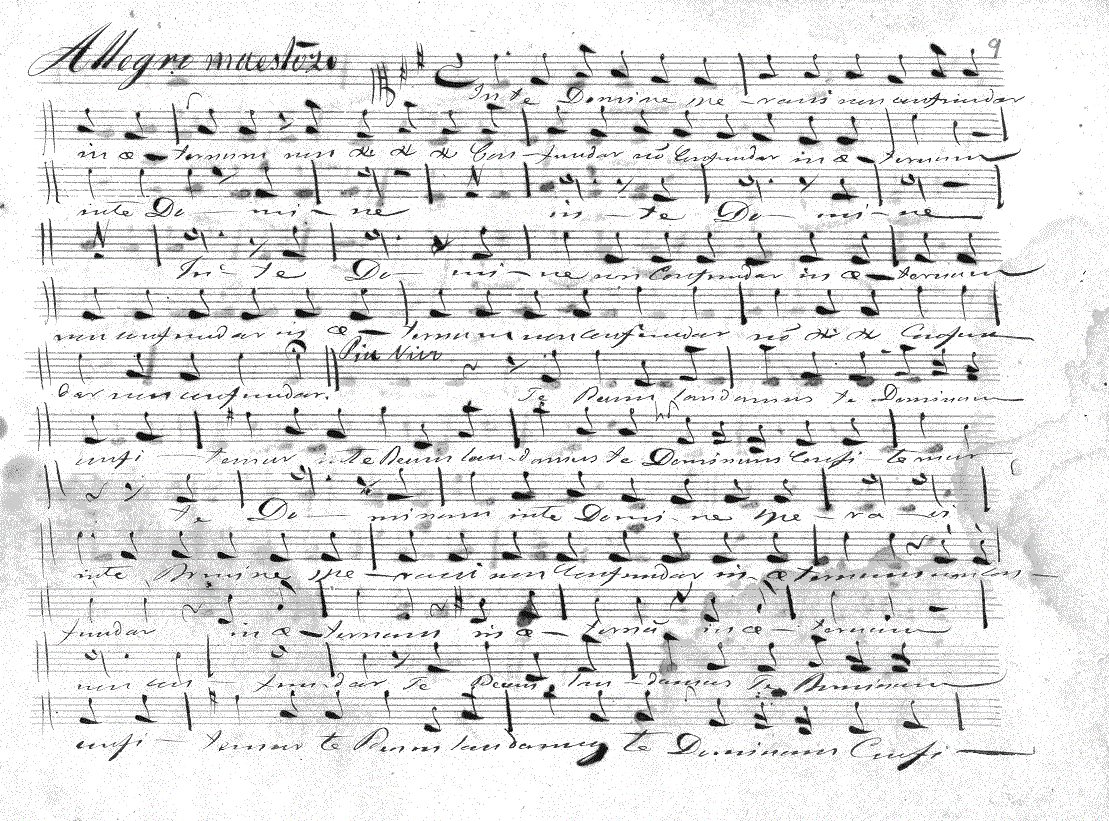 Allegro maestōzo 9
In te Domine spe - ravi non confundar
in æ - ternum non Con - fundar nō Confundar in æ - ternum
inte Do - mi - ne in - te Do - mi - ne
In - te Do - mi - ne non Confundar in æ - ternum
non confundar in æ - ternum non confundar nō Confun
dar non confundar. Piu Vivo Te Deum laudamus te Dominum
confi - temur te Deum lau - damus te Dominum Confi temur
te Do - minum inte Domi - ne spe - ra vi
inte Domine spe - ravi non Confundar in æternum non con -
fundar in æ - ternum in æ - ternū in æ - ternum
non con - fundar Te Deum lau - damus Te Dominum
confi - temur te Deum laudamus te Dominum Confi -